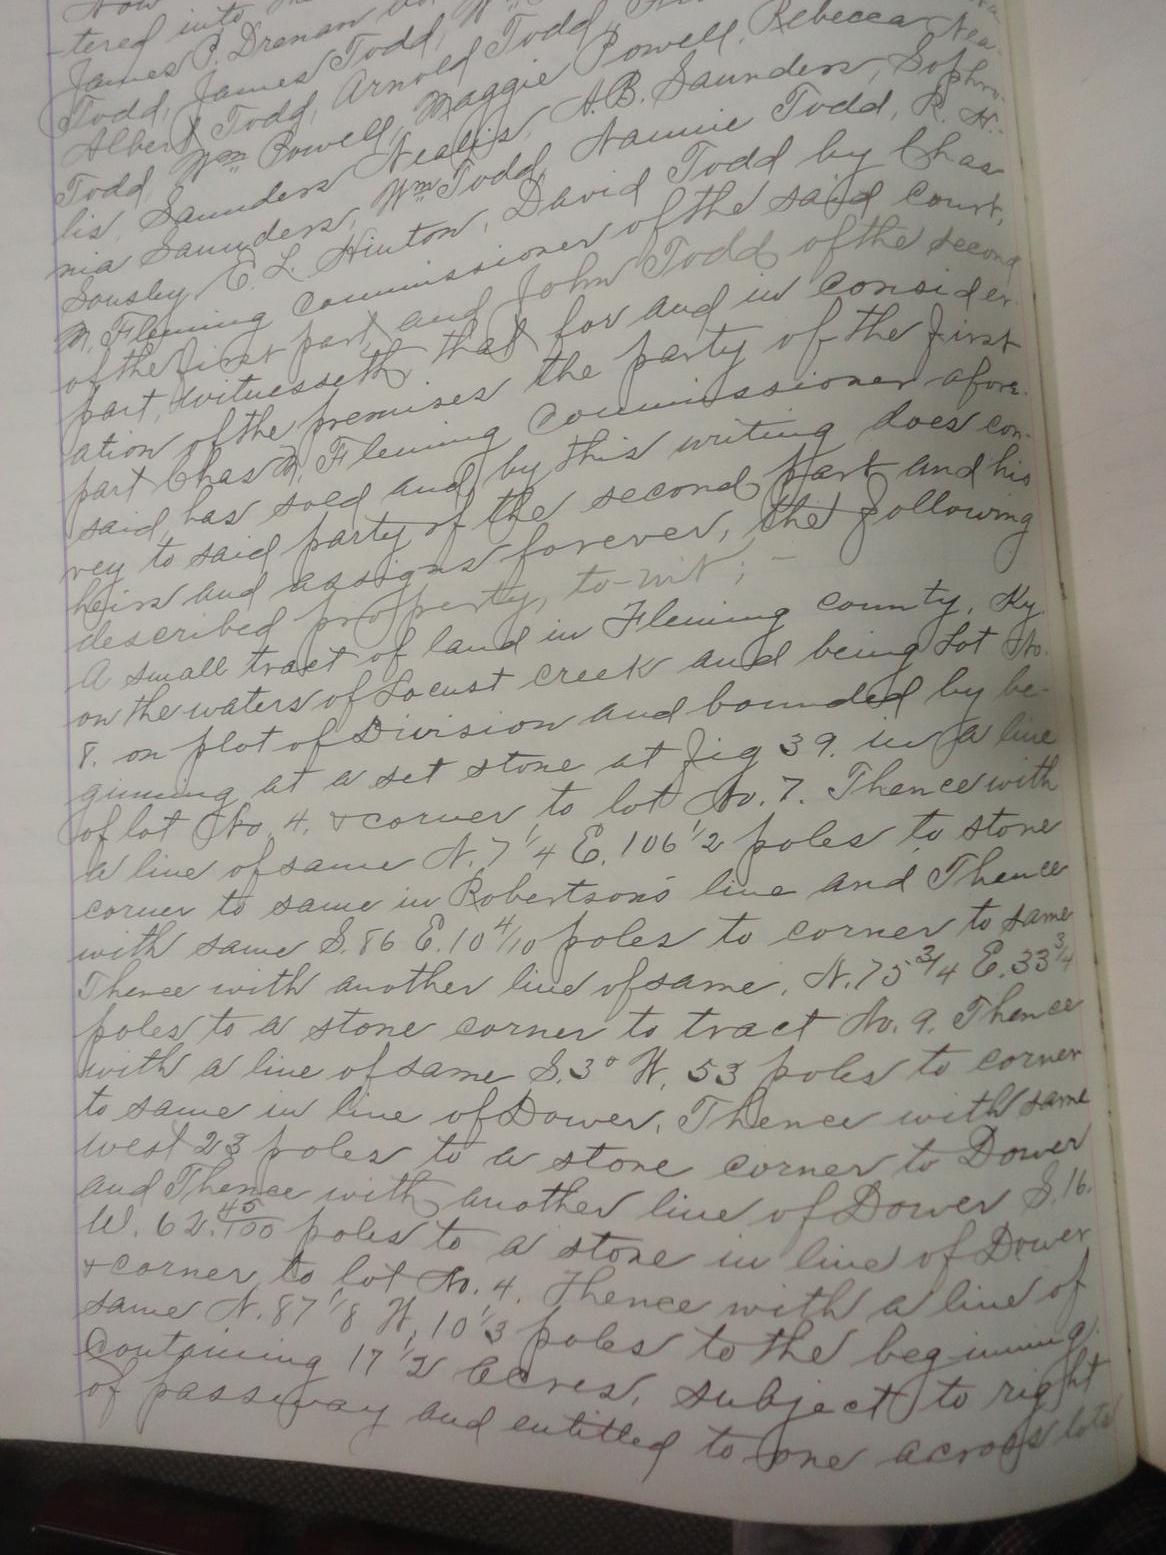 Now
-tered into
James P. Drenan
Todd, James Todd, Wm
Albert Todd, Arnold Todd
Todd, Wm Powell, Maggie Powell, Rebecca Nea-
lis, Saunders Nealis, A.B. Saunders, Sophro-
nia Saunders, Wm Todd, Nannie Todd, R. H.
Sousley, E. L. Hinton, David Todd by Chas
N. Fleming commissioner of the said court,
of the first part, and John Todd of the second
part, witnesseth, that for and in consider-
ation of the premises the party of the first
part Chas N. Fleming Commissioner afore-
said, has sold and by this writing does con-
vey to said party of the second part and his
heirs and assigns forever, the following
described property, to-wit; -
A small tract of land in Fleming county, Ky.
on the waters of Locust creek and being Lot No.
8. on plot of Division and bounded by be-
ginning at a set stone at fig 39. in a line
of lot No. 4. & corner to lot No. 7. Thence with
a line of same N. 7 1/4 E. 106 1/2 poles to stone
corner to same in Robertson's line and Thence
with same S. 86 E. 10 4/10 poles to corner to same
Thence with another line of same. N. 75 3/4 E. 33 3/4
poles to a stone corner to tract No. 9. Thence
with a line of same S. 3° W. 53 poles to corner
to same in line of Dower. Thence with same
west 23 poles to a stone corner to Dower
and Thence with another line of Dower S. 16.
W. 62. 45/100 poles to a stone in line of Dower
& corner to lot No. 4. Thence with a line of
same N. 87 1/8 W. 10 1/3 poles to the beginning.
Containing 17 1/2 Acres, subject to right
of passway and entitled to one across lots